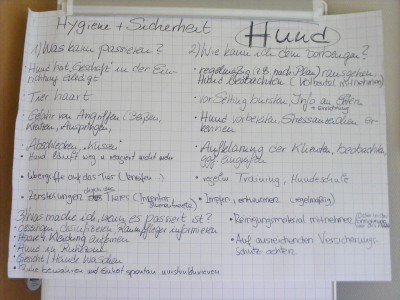 Hygiene + Sicherheit
Hund
1) Was kann passieren?
• Hund hat "Geschäft" in der Ein-
richtung erledigt
• Tier haart
• Gefahr von Angriffen (Beißen,
Kratzen, Anspringen,
Abschlecken, "küssen"
• Hund läuft weg u. reagiert nicht mehr
• Übergriffe auf das Tier (kneifen)
• Zerstellungen durch das Tieres (Inventar,
2) Wie kann ich dem vorbeugen?
• regelmäßig (z.B. nach Plan) rausgehen
Hund beobachten (mitnehmen)
• vor Setting bürsten, Info an Eltern
+ Einrichtung
• Hund vorbereiten, Stressanzeichen er-
kennen
• Aufklärung der Klienten, beobachten
ggf. eingreifen
• regelm. Training, Hundeschule
• Impfen, entwurmen (regelmäßig)
3) Was mache ich, wenn es passiert ist?
• desinfizieren, Raumpfleger informieren
• Haare v. Kleidung entfernen
• Hund in Ruhezone
• Gesicht / Hände waschen
• Ruhe bewahren und Einheit spontan umstrukturieren
• Reinigungsmaterial mitnehmen
• Auf ausreichenden Versicherungs-
schutz achten